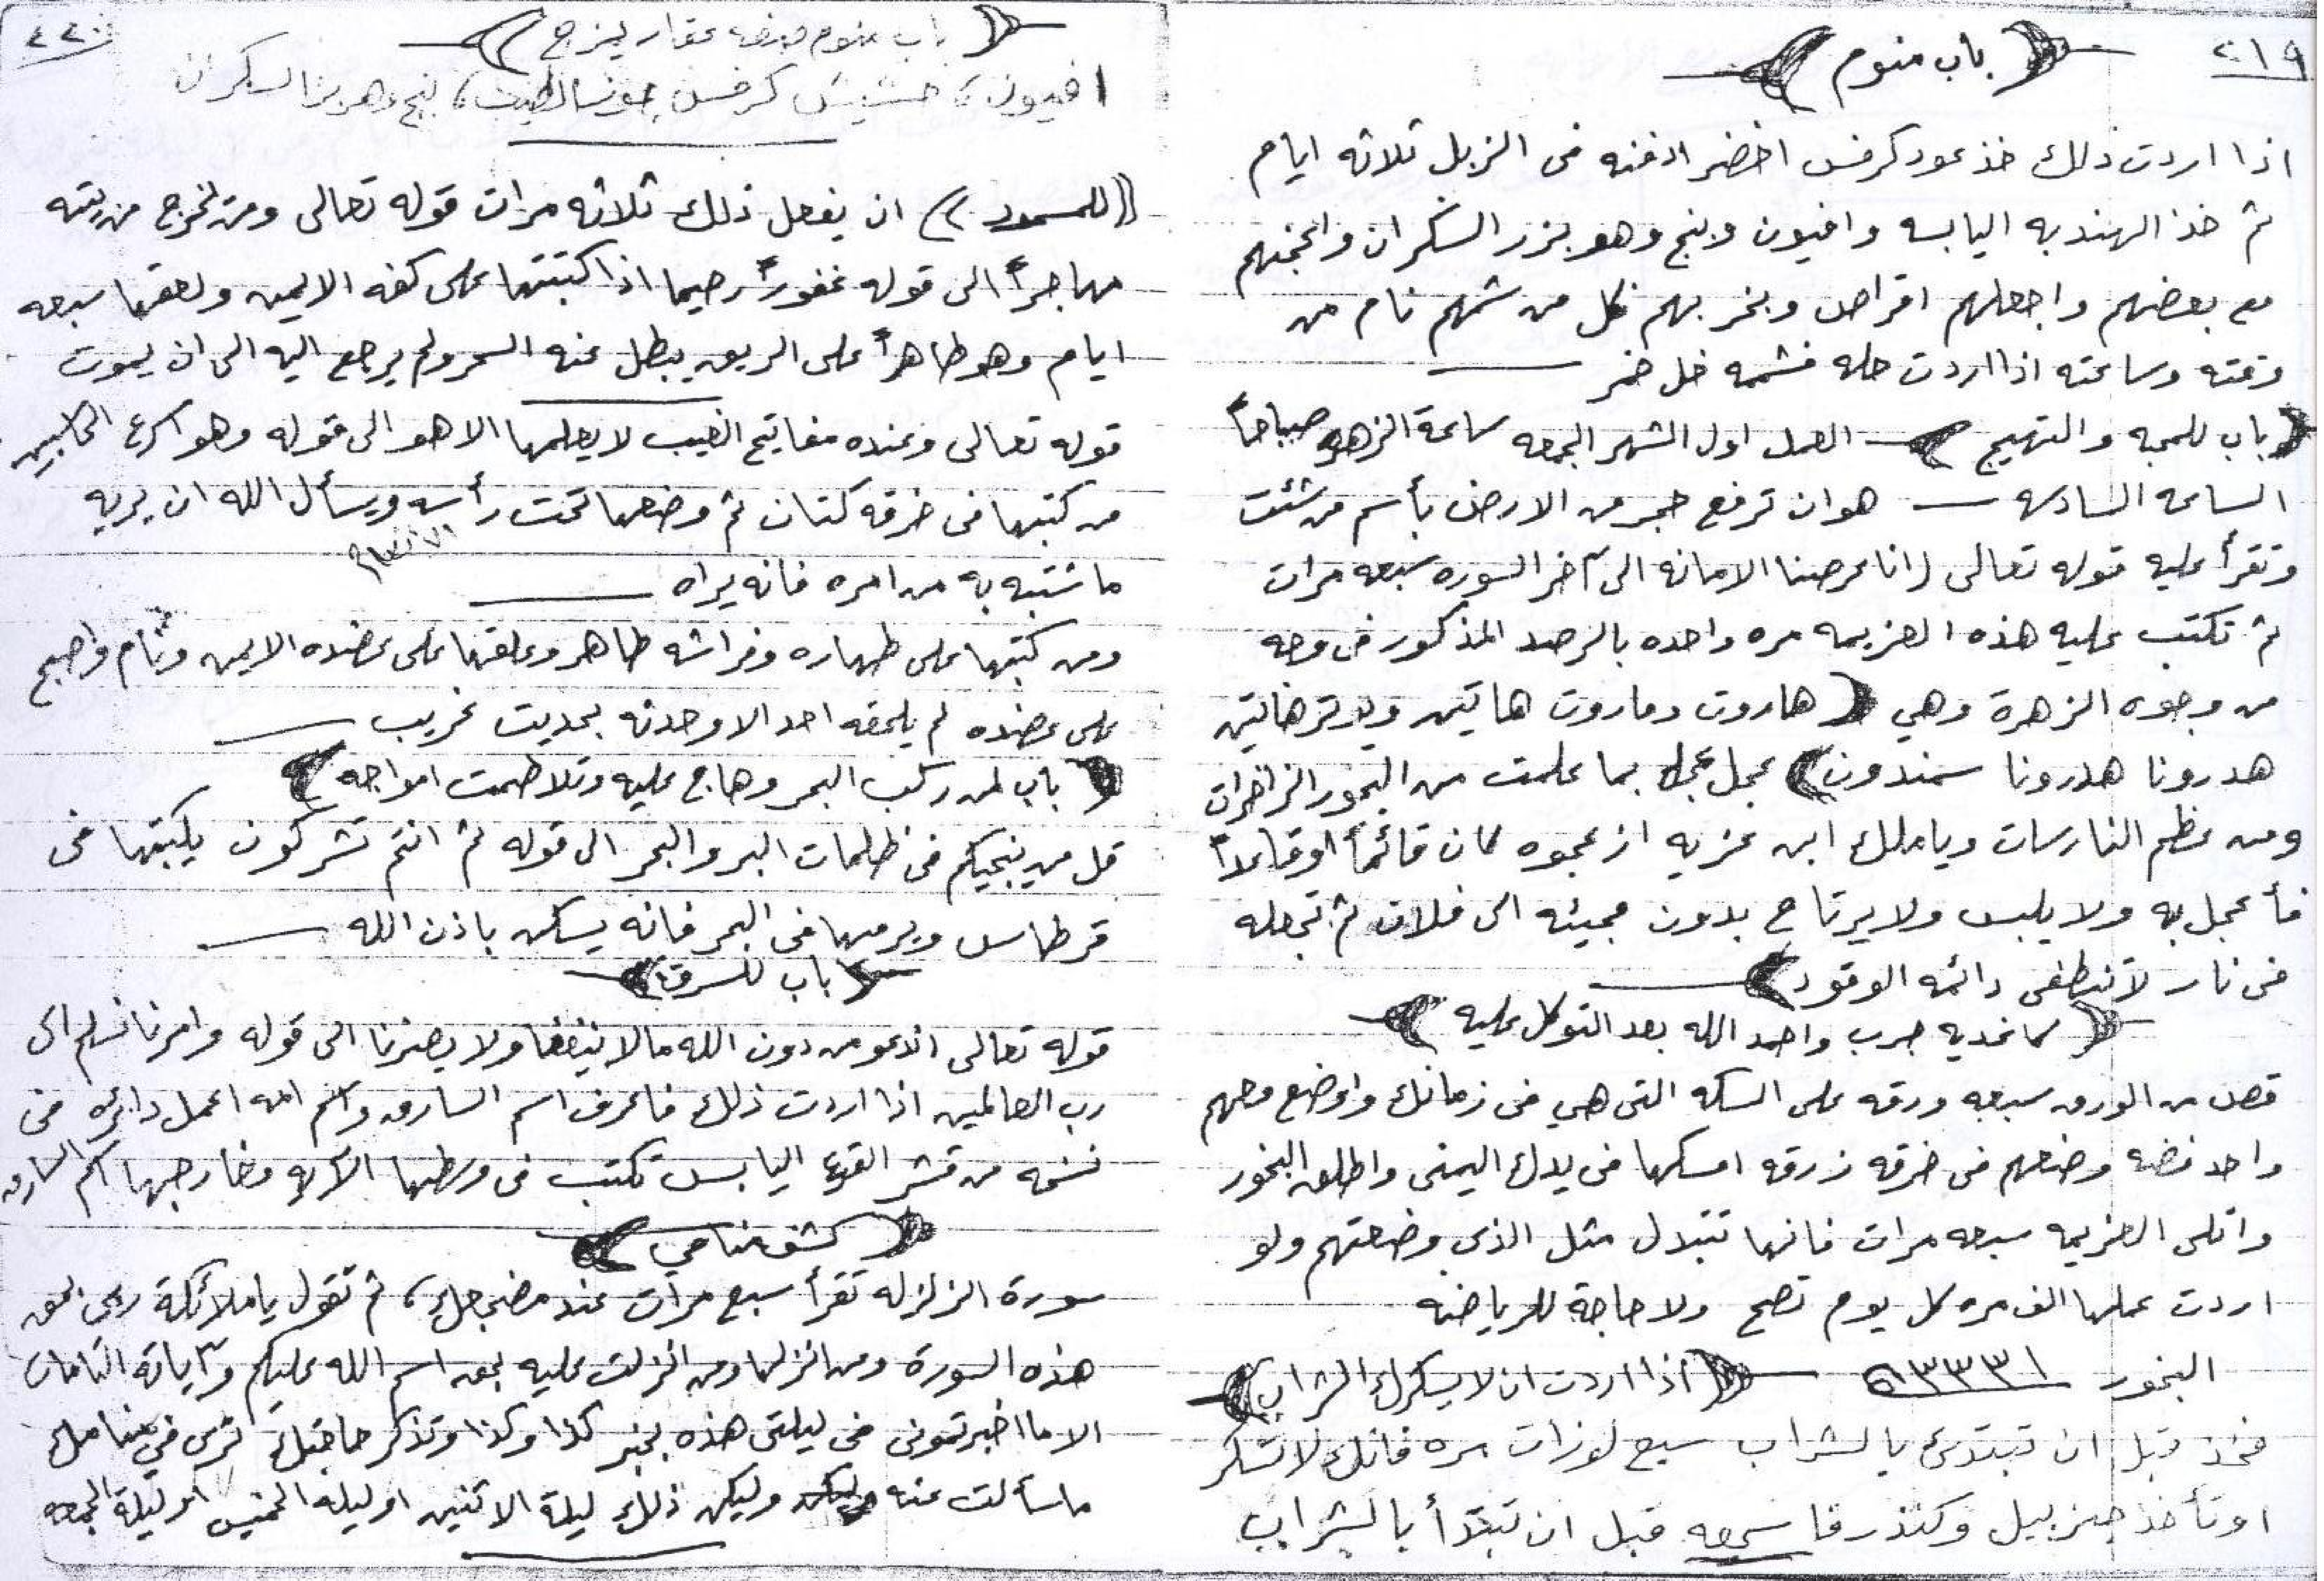 ٢١٩
باب منوم
اذا اردت ذلك خذ عود كرفس اخضر ادفنه فى الزبل ثلاثه ايام
ثم خذ الهندبه اليابسه وافيون وبنج وهو بزر السكران واعجنهم
مع بعضهم واجعلهم اقراص وبخر بهم فكل من شمهم نام من
وقته وساعته اذا اردت حله فشمه خل خمر
باب للمحبه والتهيج العمل اول الشهر الجمعه ساعة الزهره صباحاً
الساعه السادسه هو ان ترفع حجر من الارض بأسم من شئت
وتقرأ عليه قوله تعالى انا عرضنا الامانه الى آخر السوره سبعه مرات
ثم تكتب عليه هذه العزيمه مره واحده بالرصد المذكور فى وجه
من وجوه الزهرة وهي هاروت وماروت هاتين
هدرونا هدرونا سمندون عجل بما علمت من البخور الزاخرات
ومن عظم النارسات وياملك ابن عزيه ازعجوه كان قائماً اوقاعداً
فأعجل به ولا يلبس ولا يرتاح بدون مجيئه الى فلان ثم تجعله
فى نار لا تنطفى دائمه الوقود
كاغديه جرب واحمد الله بعد التوكل عليه
قص من الورق سبعه ورقه على السكه التى هي فى زمانك واوضع معهم
واحد فضه وضعهم فى خرقه زرقه امسكها فى يدك اليمنى واطلق البخور
واتلى العزيمه سبعه مرات فانها تتبدل مثل الذى وضعتهم ولو
اردت عملها الف مره كل يوم تصح ولا حاجة للرياضه
البخور
اذا اردت ان لا يسكرك الشراب
فخذ قبل ان تبتدئ بالشراب سبع لوزات مره فانك لا تسكر
اوتأخذ جنزبيل وكندر قبل ان تبتدأ بالشراب
٢٢٠
باب منوم عقار يمزج
افيون، حشيش كرفس جوزة الطيب، بنج وهو بزر السكران
((للمسحور)) ان يفعل ذلك ثلاثه مرات قوله تعالى ومن يخرج من بيته
مهاجراً الى قوله غفوراً رحيما اذا كتبتها على كفه الايمن ولعقها سبعه
ايام وهو طاهراً على الريق يبطل عنه السحر ولم يرجع اليه الى ان يموت
قوله تعالى وعنده مفاتيح الغيب لا يعلمها الا هو الى قوله وهو اسرع الحاسبين
من كتبها فى خرقه كتان ثم وضعها تحت رأسه ويسأل الله ان يريه
ما شتبه به من امره فانه يراه
ومن كتبها على طهاره وفراشه طاهر وعلقها على عضده الايمن ونام واصبح
على عضده لم يلحقه احد الا وحدثه بحديث غريب
باب لمن ركب البحر وهاج عليه وتلاطمت امواجه
قل من ينجيكم فى ظلمات البر والبحر الى قوله ثم انتم تشركون يكتبها فى
قرطاس ويرميها فى البحر فانه يسكن باذن الله
باب للسرقة
قوله تعالى اندعو من دون الله مالا ينفعنا ولا يضرنا الى قوله وامرنا لنسلم الى
رب العالمين اذا اردت ذلك فاعرف اسم السارق واسم امه اعمل دائره فى
نسخه من قشر القرع اليابس تكتب فى وسطها الآيه وخارجها اسم السارق
كشف منامي
سورة الزلزله تقرأ سبع مرات عند مضجعك، ثم تقول يا ملائكة ربى بحق
هذه السورة ومن انزلها ومن انزلت عليه بحق اسم الله عليكم وآياته التامات
الا ما اخبرتمونى فى ليلتى هذه بخبر كذا وكذا وتذكر حاجتك ترى فى منامك
ما سألت عنه وليكن ذلك ليلة الاثنين او ليله الخميس او ليلة الجمعه